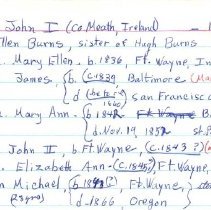 John I (Co Meath, Ireland)
Ellen Burns, sister of Hugh Burns
Mary Ellen, b. 1836, Ft. Wayne, In
James, b. (c. 1839 Baltimore
d (before 1860) San Francisc
Mary Ann, b. 1842 Ft. Wayne B
d. Nov. 19, 1852 St. P
John II, b. Ft. Wayne, (c. 1843?)
Elizabeth Ann - (c. 1845?) Ft. Wayne,
Michael, b. 1848(?) Ft. Wayne,
d - 1866, Oregon